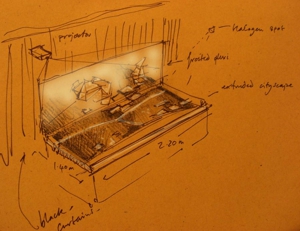 projector
Halogen spot
frosted plexi
extruded cityscape
1.40m
2.20m
black
curtain